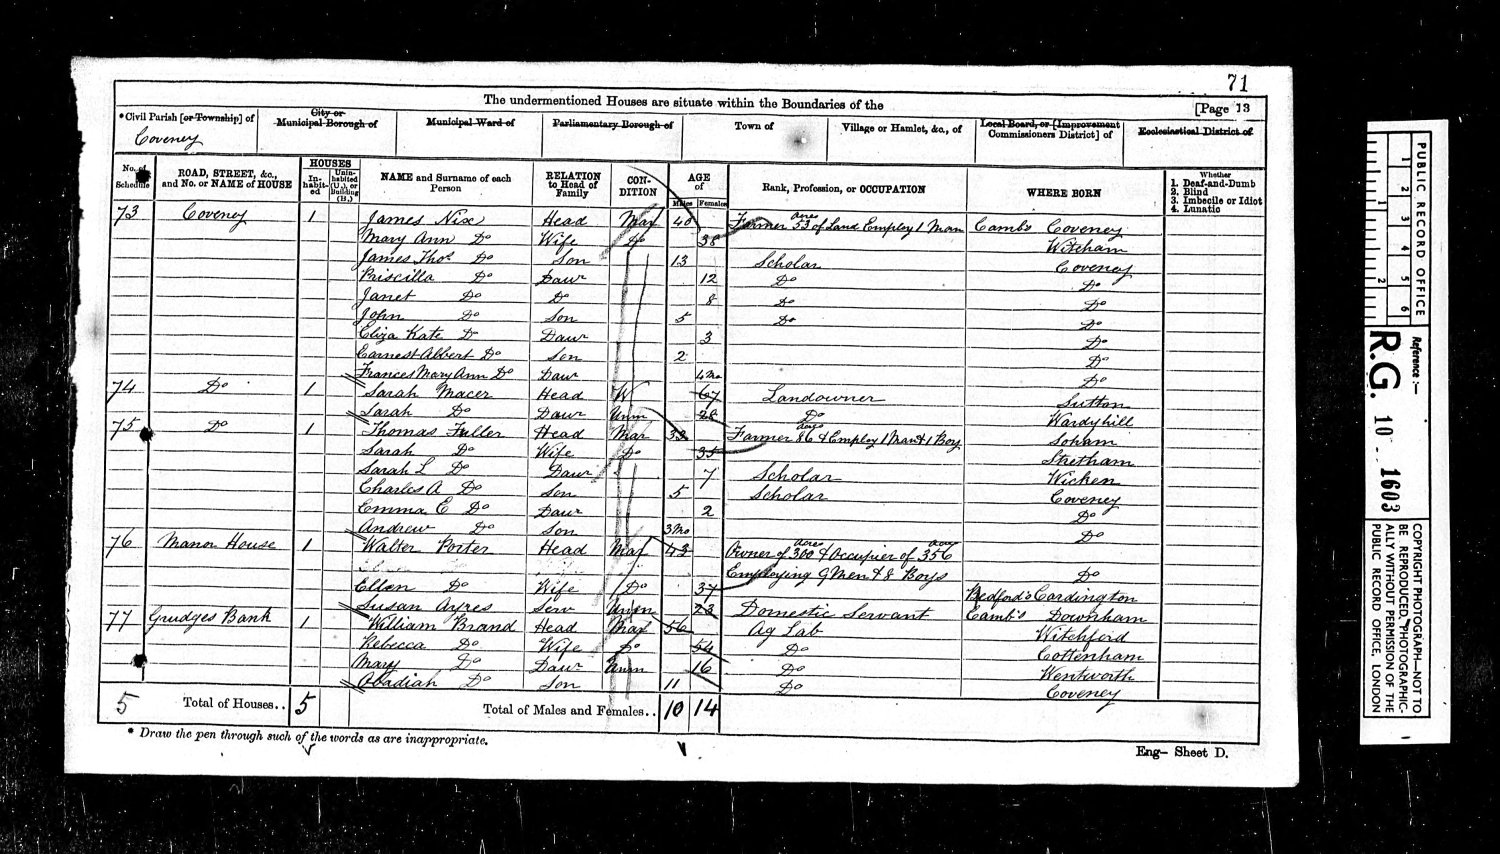 71
The undermentioned Houses are situate within the Boundaries of the
[Page 13
* Civil Parish [or Township] of
City or Municipal Borough of
Municipal Ward of
Parliamentary Borough of
Town of
Village or Hamlet, &c., of
Local Board, or [Improvement Commissioners District] of
Ecclesiastical District of
Coveney
No. of Schedule
ROAD, STREET, &c., and No. or NAME of HOUSE
HOUSES
Inhabited
Uninhabited (U.), or Building (B.)
NAME and Surname of each Person
RELATION to Head of Family
CONDITION
AGE of
Males
Females
Rank, Profession, or OCCUPATION
WHERE BORN
Whether
1. Deaf-and-Dumb
2. Blind
3. Imbecile or Idiot
4. Lunatic
73 Coveney 1 James Nix Head Mar 40 Farmer 53 acres of Land Employ 1 Man Cambs Coveney
Mary Ann Do Wife Do 38 Witcham
James Thos. Do Son 13 Scholar Coveney
Priscilla Do Daur 12 Do Do
Janet Do Do 8 Do Do
John Do Son 5 Do Do
Eliza Kate Do Daur 3 Do
Earnest Albert Do Son 2 Do
Frances Mary Ann Do Daur 4 Mo Do
74 Do 1 Sarah Macer Head W 67 Landowner Sutton
Sarah Do Daur Unm 28 Do Wardyhill
75 Do 1 Thomas Fuller Head Mar 33 Farmer 86 acres & Employ 1 Man & 1 Boy Soham
Sarah Do Wife Do 35 Stretham
Sarah L Do Daur 7 Scholar Wicken
Charles A Do Son 5 Scholar Coveney
Emma E Do Daur 2 Do
Andrew Do Son 3 Mo Do
76 Manor House 1 Walter Porter Head Mar 43 Owner of 300 acres & Occupier of 356 acres
Employing 9 Men & 8 Boys Do
Ellen Do Wife Do 37 Bedfords Cardington
Susan Ayres Serv Unm 23 Domestic Servant Cambs Downham
77 Grudges Bank 1 William Brand Head Mar 56 Ag Lab Witchford
Rebecca Do Wife Do 54 Do Cottenham
Mary Do Daur Unm 16 Do Wentworth
Obadiah Do Son 11 Do Coveney
5 Total of Houses.. 5 Total of Males and Females.. 10 14
* Draw the pen through such of the words as are inappropriate.
Eng— Sheet D.
PUBLIC RECORD OFFICE
1 2 3 4 5 6
1 2
Reference :—
R.G. 10 1603
COPYRIGHT PHOTOGRAPH—NOT TO
BE REPRODUCED PHOTOGRAPHIC-
ALLY WITHOUT PERMISSION OF THE
PUBLIC RECORD OFFICE, LONDON